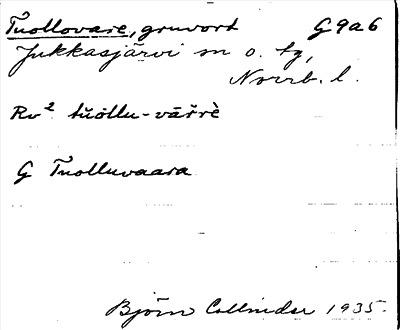 Tuollovare, gruvort G9a6
Jukkasjärvi sn o. tg,
Norrb. l.
Rv² tŭöllu-vārrè
G Tuolluvaara
Björn Collinder 1935.